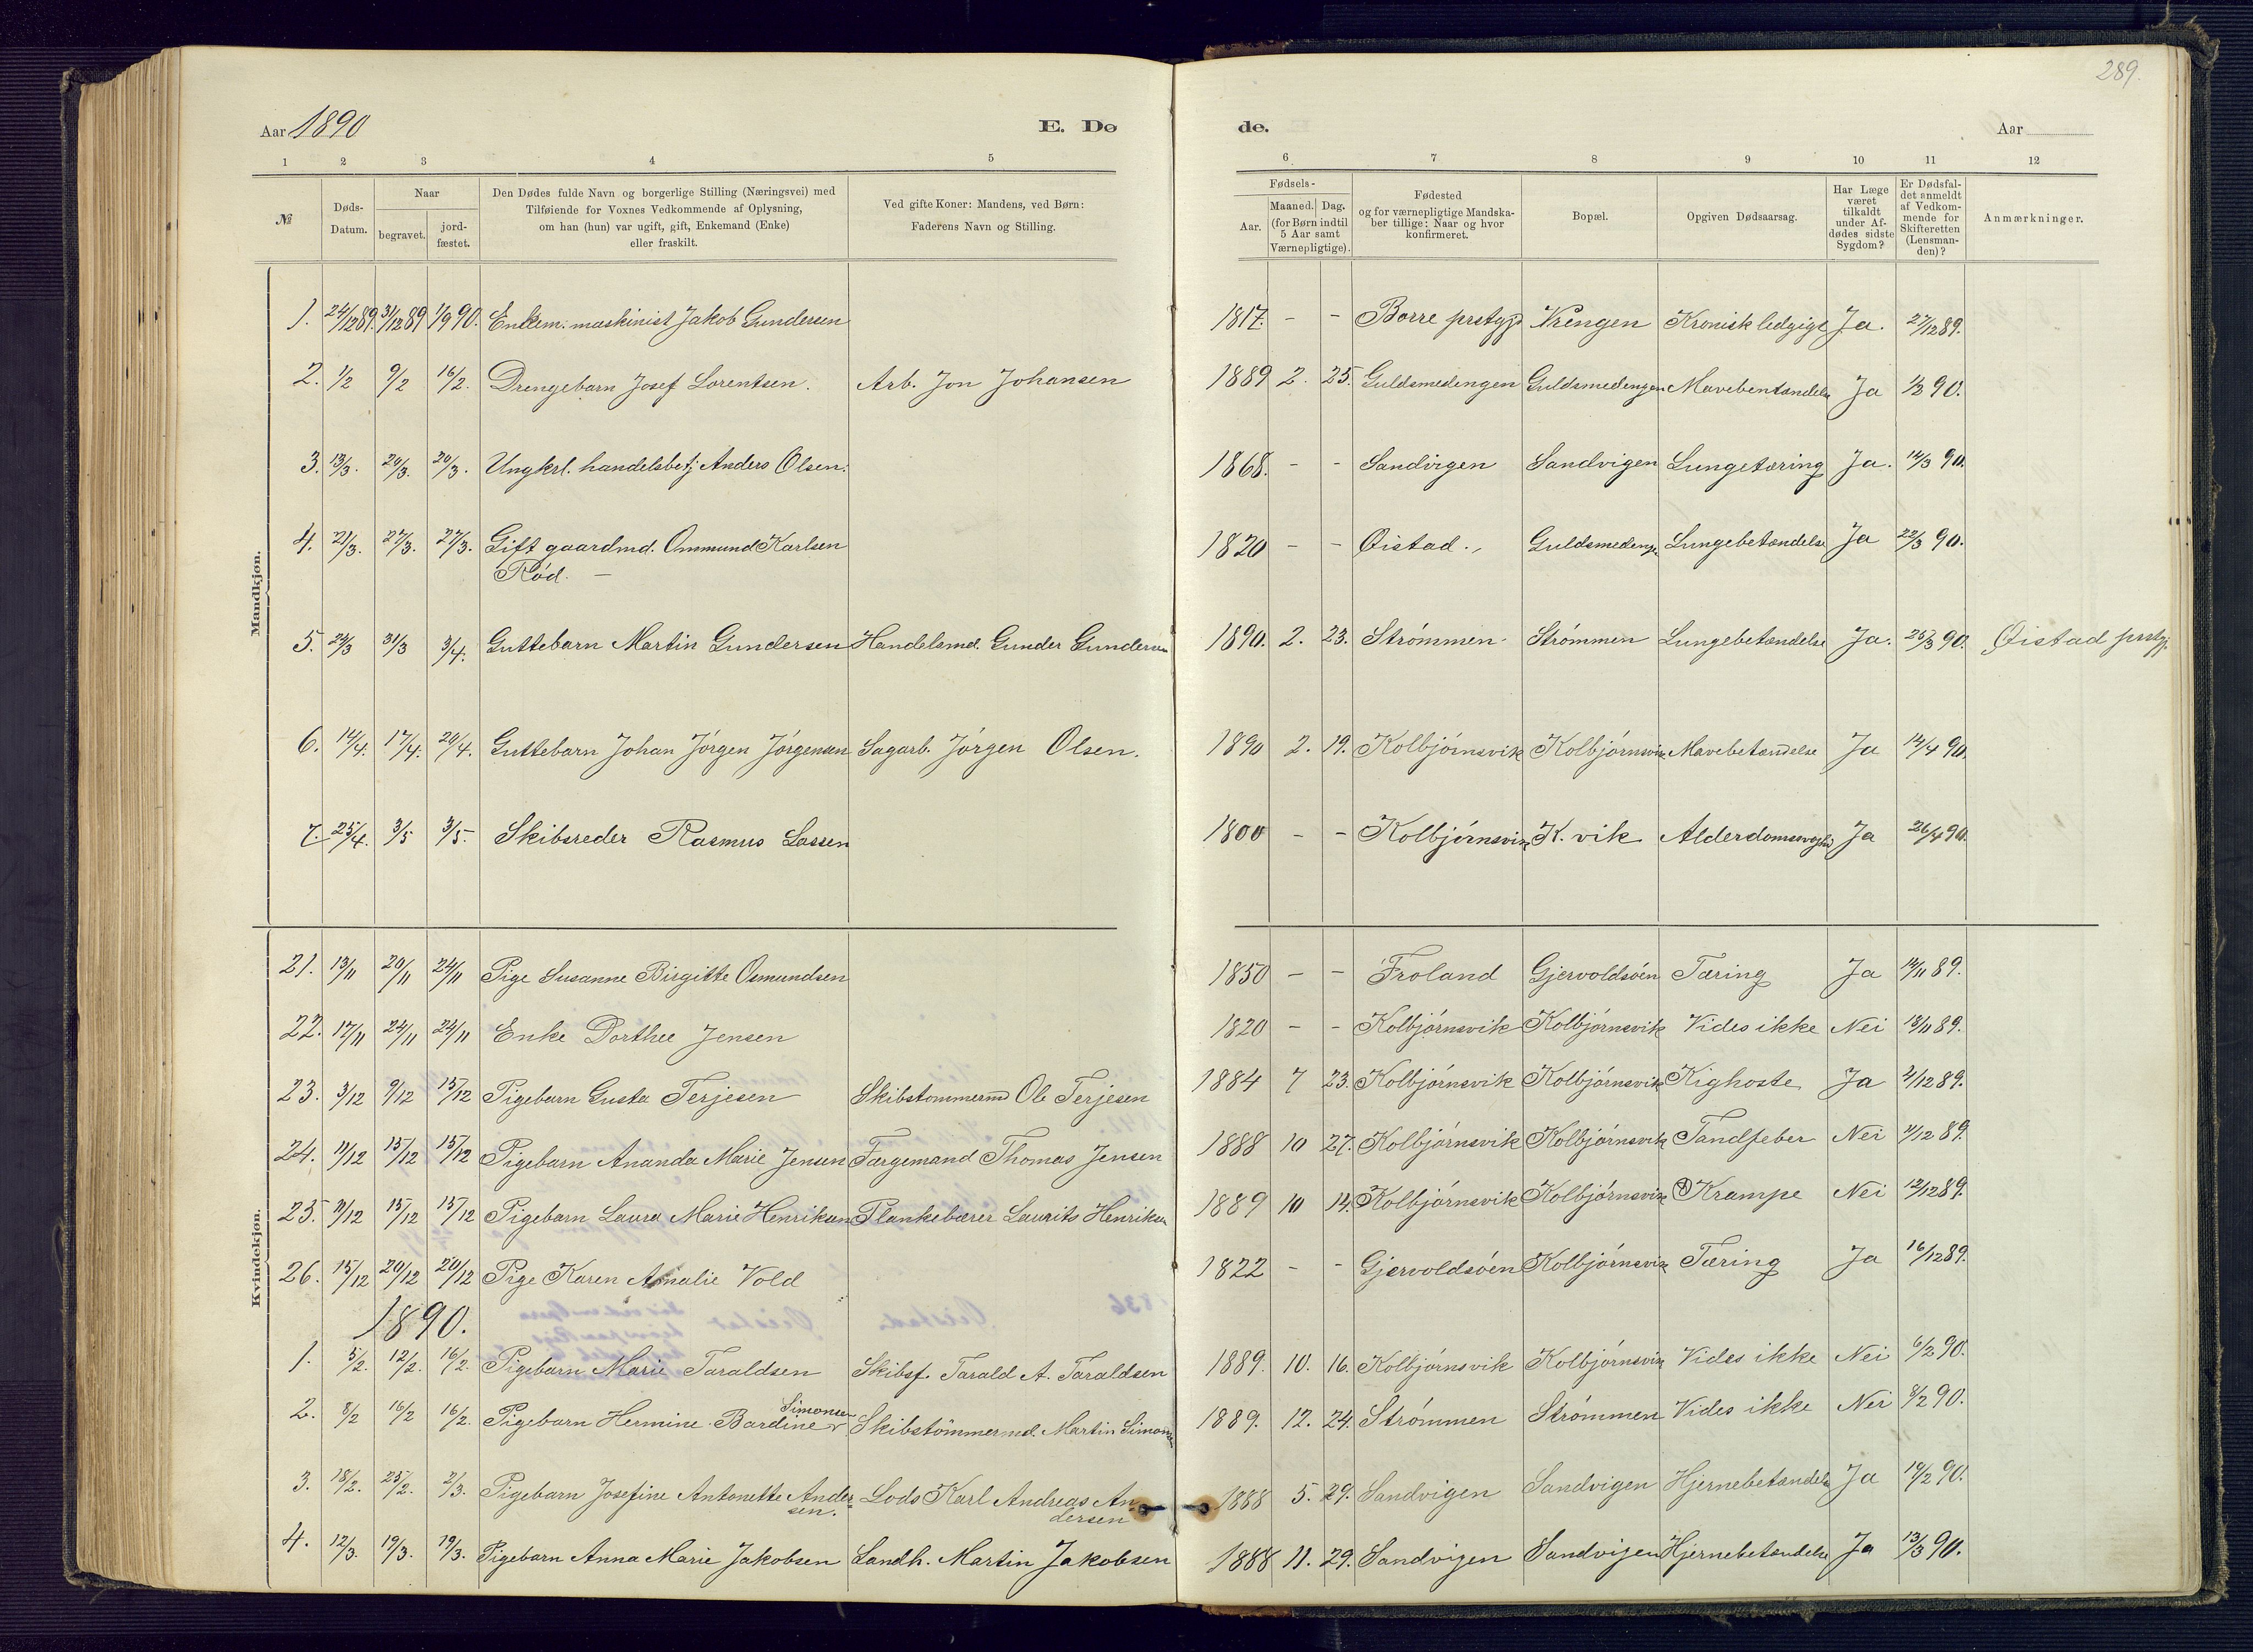 289.
Aar 1890
E. Dø
de.
Aar
1 2 3 4 5 6 7 8 9 10 11 12
№
Døds-Datum.
Naar
begravet.
jord-fæstet.
Den Dødes fulde Navn og borgerlige Stilling (Næringsvei) med
Tilføiende for Voxnes Vedkommende af Oplysning,
om han (hun) var ugift, gift, Enkemand (Enke)
eller fraskilt.
Ved gifte Koner: Mandens, ved Børn:
Faderens Navn og Stilling.
Fødsels-
Aar.
Maaned. Dag.
(for Børn indtil
5 Aar samt
Værnepligtige).
Fødested
og for værnepligtige Mandska-
ber tillige: Naar og hvor
konfirmeret.
Bopæl.
Opgiven Dødsaarsag.
Har Læge
været
tilkaldt
under Af-
dødes sidste
Sygdom?
Er Dødsfal-
det anmeldt
af Vedkom-
mende for
Skifteretten
(Lensman-
den)?
Anmærkninger.
Mandkjøn.
1. 24/12 89. 31/12 89 1/9 90. Enkem. maskinist Jakob Gundersen 1817. - - Borre prstgj. Vrengen Kronisk ledgigt Ja. 27/12 89.
2. 1/2 9/2 16/2. Drengebarn Josef Lorentsen. Arb. Jon Johansen 1889 2. 25. Guldsmedengen Guldsmedengen Mavebentændelse Ja 1/2 90.
3. 13/3. 20/3. 20/3. Ungkrl. handelsbetj. Anders Olsen. 1868. - - Sandvigen Sandvigen Lungetæring Ja. 14/3 90.
4. 21/3. 27/3. 27/3. Gift gaardmd. Ommund Karlsen 1820 - - Øistad. Guldsmedengen Lungebetændelse Ja 22/3 90.
Rød. -
5. 24/3 31/3 3/4. Guttebarn Martin Gundersen Handelsmd. Gunder Gundersen 1890. 2. 23. Strömmen Strömmen Lungebetændelse Ja. 25/3 90. Øistad prstgj.
6. 14/4. 17/4. 20/4. Guttebarn Johan Jörgen Jörgensen Sagarb. Jörgen Olsen. 1890 2. 19. Kolbjörnsvik Kolbjörnsvik Mavebetændelse Ja 14/4 90.
7. 25/4. 3/5 3/5. Skibsreder Rasmus Lassen 1800 - - Kolbjörnsvik K. vik Alderdomssvaghd Ja 26/4 90.
Kvindekjøn.
21. 13/11 20/11 24/11 Pige Susanne Birgitte Osmundsen 1850 - - Froland Gjervoldsöen Tæring Ja 14/11 89.
22. 17/11 24/11 24/11 Enke Dorthee Jensen 1820 - - Kolbjörnsvik Kolbjörnsvik Vides ikke Nei 18/11 89.
23. 3/12 9/12 15/12 Pigebarn Gusta Terjesen Skibstømmermd Ole Terjesen 1884 7 23. Kolbjörnsvik Kolbjörnsvik Kighoste Ja 4/12 89.
24. 11/12 15/12 15/12 Pigebarn Ananda Marie Jensen Færgemand Thomas Jensen 1888 10 27. Kolbjörnsvik Kolbjörnsvik Tandfeber Nei 11/12 89.
25. 11/12 15/12 15/12 Pigebarn Laura Marie Henriksen Plankebærer Laurits Henriksen 1889 10 14. Kolbjörnsvik Kolbjörnsvik Krampe Nei 12/12 89.
26. 15/12 20/12 20/12 Pige Karen Amalie Vold 1822 - - Gjervoldsöen Kolbjörnsvik Tæring Ja 16/12 89.
1890.
1. 5/2. 12/2. 16/2. Pigebarn Marie Taraldsen Skibsf. Tarald A. Taraldsen 1889. 10. 16. Kolbjörnsvik Kolbjörnsvik Vides ikke Nei 6/2 90.
Simonsen
2. 8/2 16/2 16/2. Pigebarn Hermine Bardine Skibstömmermd. Martin Simonsen 1889. 12. 24. Strömmen Strömmen Vides ikke Nei 8/2 90.
3. 18/2. 25/2. 2/3. Pigebarn Josefine Antonette Ander- Lods Karl Andreas An- 1888 5. 29. Sandvigen Sandvigen Hjernebetændelse Ja 19/2 90.
sen. dersen
4. 12/3. 19/3. 19/3. Pigebarn Anna Marie Jakobsen Landh. Martin Jakobsen 1888 11. 29. Sandvigen Sandvigen Hjernebetændelse Ja 13/3 90.